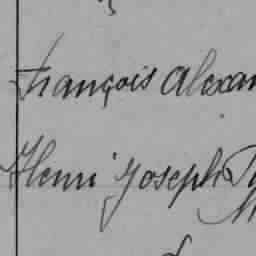 François Alexan
Henri Joseph